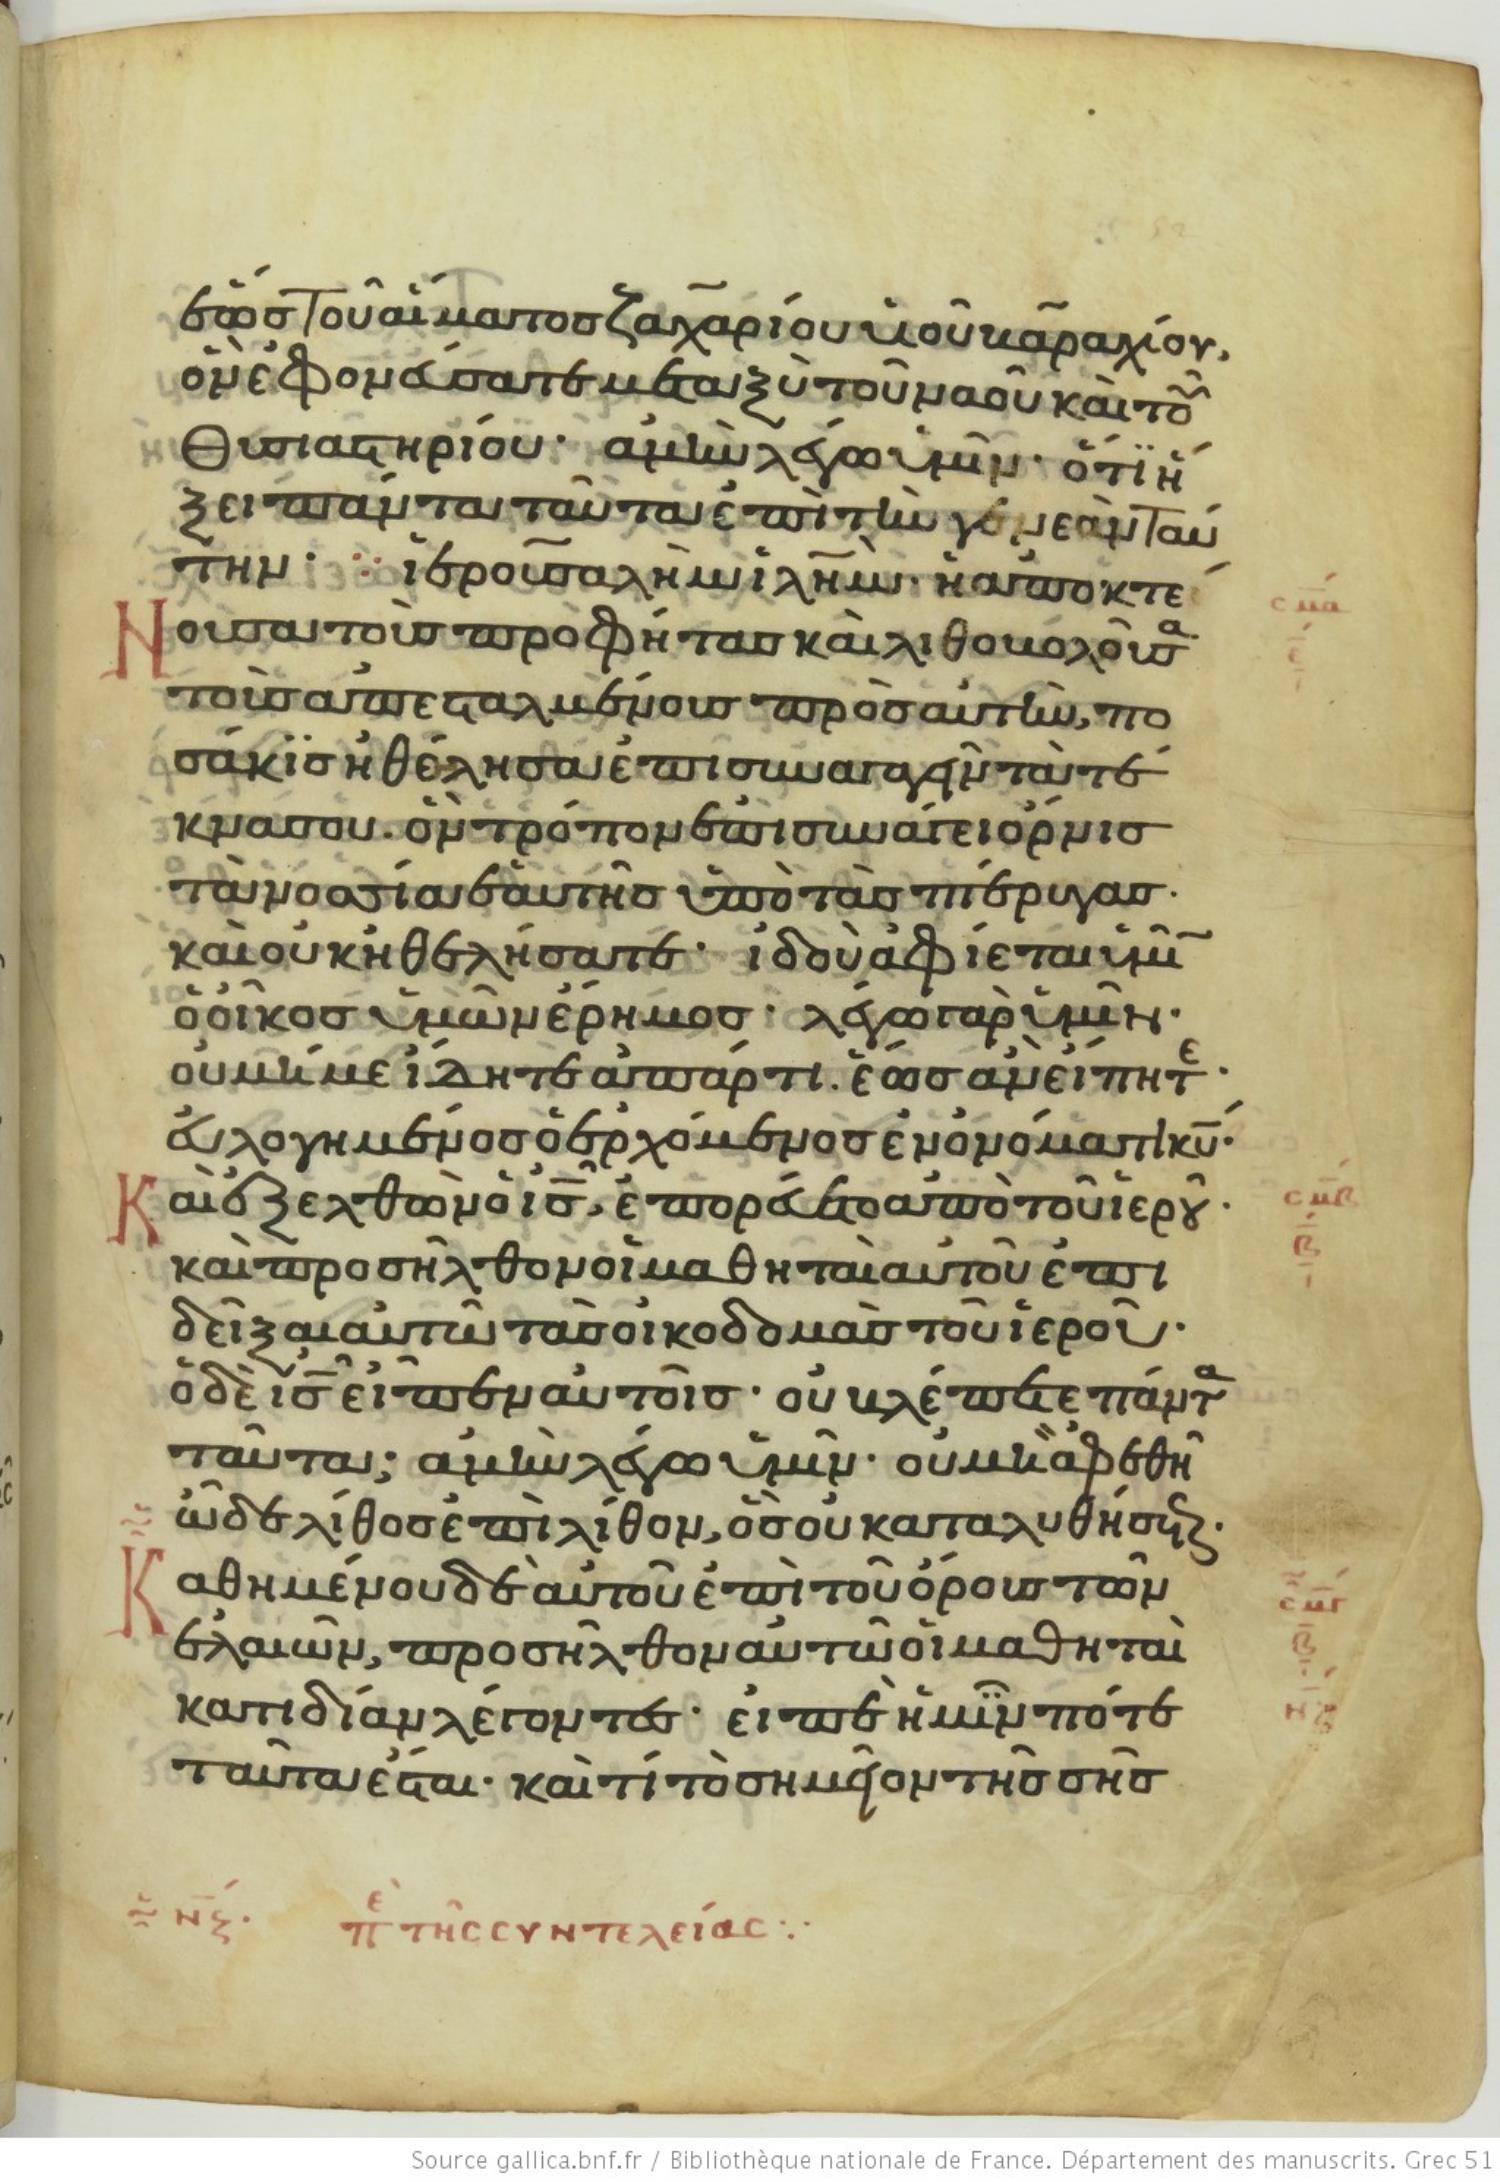 ἕως τοῦ αἵματος ζαχαρίου υἱοῦ βαραχίου,
ὃν ἐφονεύσατε μεταξὺ τοῦ ναοῦ καὶ τοῦ
θυσιαστηρίου· ἀμὴν λέγω ὑμῖν· ὅτϊ ἥ
ξει πάντα ταῦτα ἐπὶ τὴν γενεὰν ταύ
την· ἱερουσαλὴμ ἱλῆμ· ἡ ἀποκτέ
νουσα τοὺς προφήτας καὶ λιθοβολοῦσα
τοὺς ἀπεσταλμένους πρὸς αὐτὴν, πο
σάκϊς ἠθέλησα ἐπισυναγαγεῖν τὰ τέ
κνα σου. ὃν τρόπον ἐπισυνάγει ὄρνις
τὰ νοσσία ἑαυτῆς ὑπὸ τὰς πτέρυγας·
καὶ οὐκ ἠθελήσατε· ἰδοὺ ἀφίεται ὑμῖ
ὁ οἶκος ὑμῶν ἔρημος· λέγω γὰρ ὑμῖν·
οὐ μή με ἴδητε ἀπάρτι. ἕως ἂν εἴπητε·
εὐλογημένος ὁ ἐρχόμενος ἐν ὀνόματι κυ·
Καὶ ἐξελθὼν ὁ ις, ἐπορεύετο ἀπὸ τοῦ ἱεροῦ·
καὶ προσῆλθον οἱ μαθηταὶ αὐτοῦ ἐπι
δεῖξαι αὐτῶ τὰς οἰκοδομὰς τοῦ ἱεροῦ·
ὁ δὲ ις εἶπεν αὐτοῖς· οὐ βλέπετε πάντα
ταῦτα; ἀμὴν λέγω ὑμῖν· οὐ μὴ ἀφεθῆ
ὧδε λίθος ἐπὶ λίθον, ὃς οὐ καταλυθήσεται·
Καθημένου δὲ αὐτοῦ ἐπὶ τοῦ ὄρους τῶν
ἐλαιῶν, προσῆλθον αὐτῶ οἱ μαθηταὶ
κατιδίαν λέγοντες· εἰπὲ ἡμῖν πότε
ταῦτα ἔσται· καὶ τί τὸ σημεῖον τῆς σῆς
νζ· πε τῆς συντελείας
σμα
ε
σμβ
β
σμγ
β
Source gallica.bnf.fr / Bibliothèque nationale de France. Département des manuscrits. Grec 51